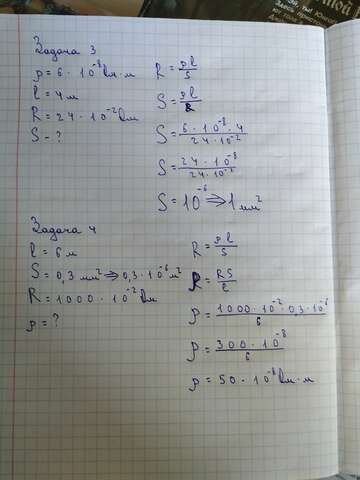 Задача 3
ρ = 6 · 10⁻⁸ Ом · м
l = 4 м
R = 24 · 10⁻² Ом
S - ?
R = ρl/S
S = ρl/R
S = 6 · 10⁻⁸ · 4/24 · 10⁻²
S = 24 · 10⁻⁸/24 · 10⁻²
S = 10⁻⁶ ⇒ 1 мм²
Задача 4
l = 6 м
S = 0,3 мм² ⇒ 0,3 · 10⁻⁶ м²
R = 1000 · 10⁻² Ом
ρ = ?
R = ρl/S
R = RS/l
ρ = 1000 · 10⁻² · 0,3 · 10⁻⁶/6
ρ = 300 · 10⁻⁸/6
ρ = 50 · 10⁻⁸ Ом · м